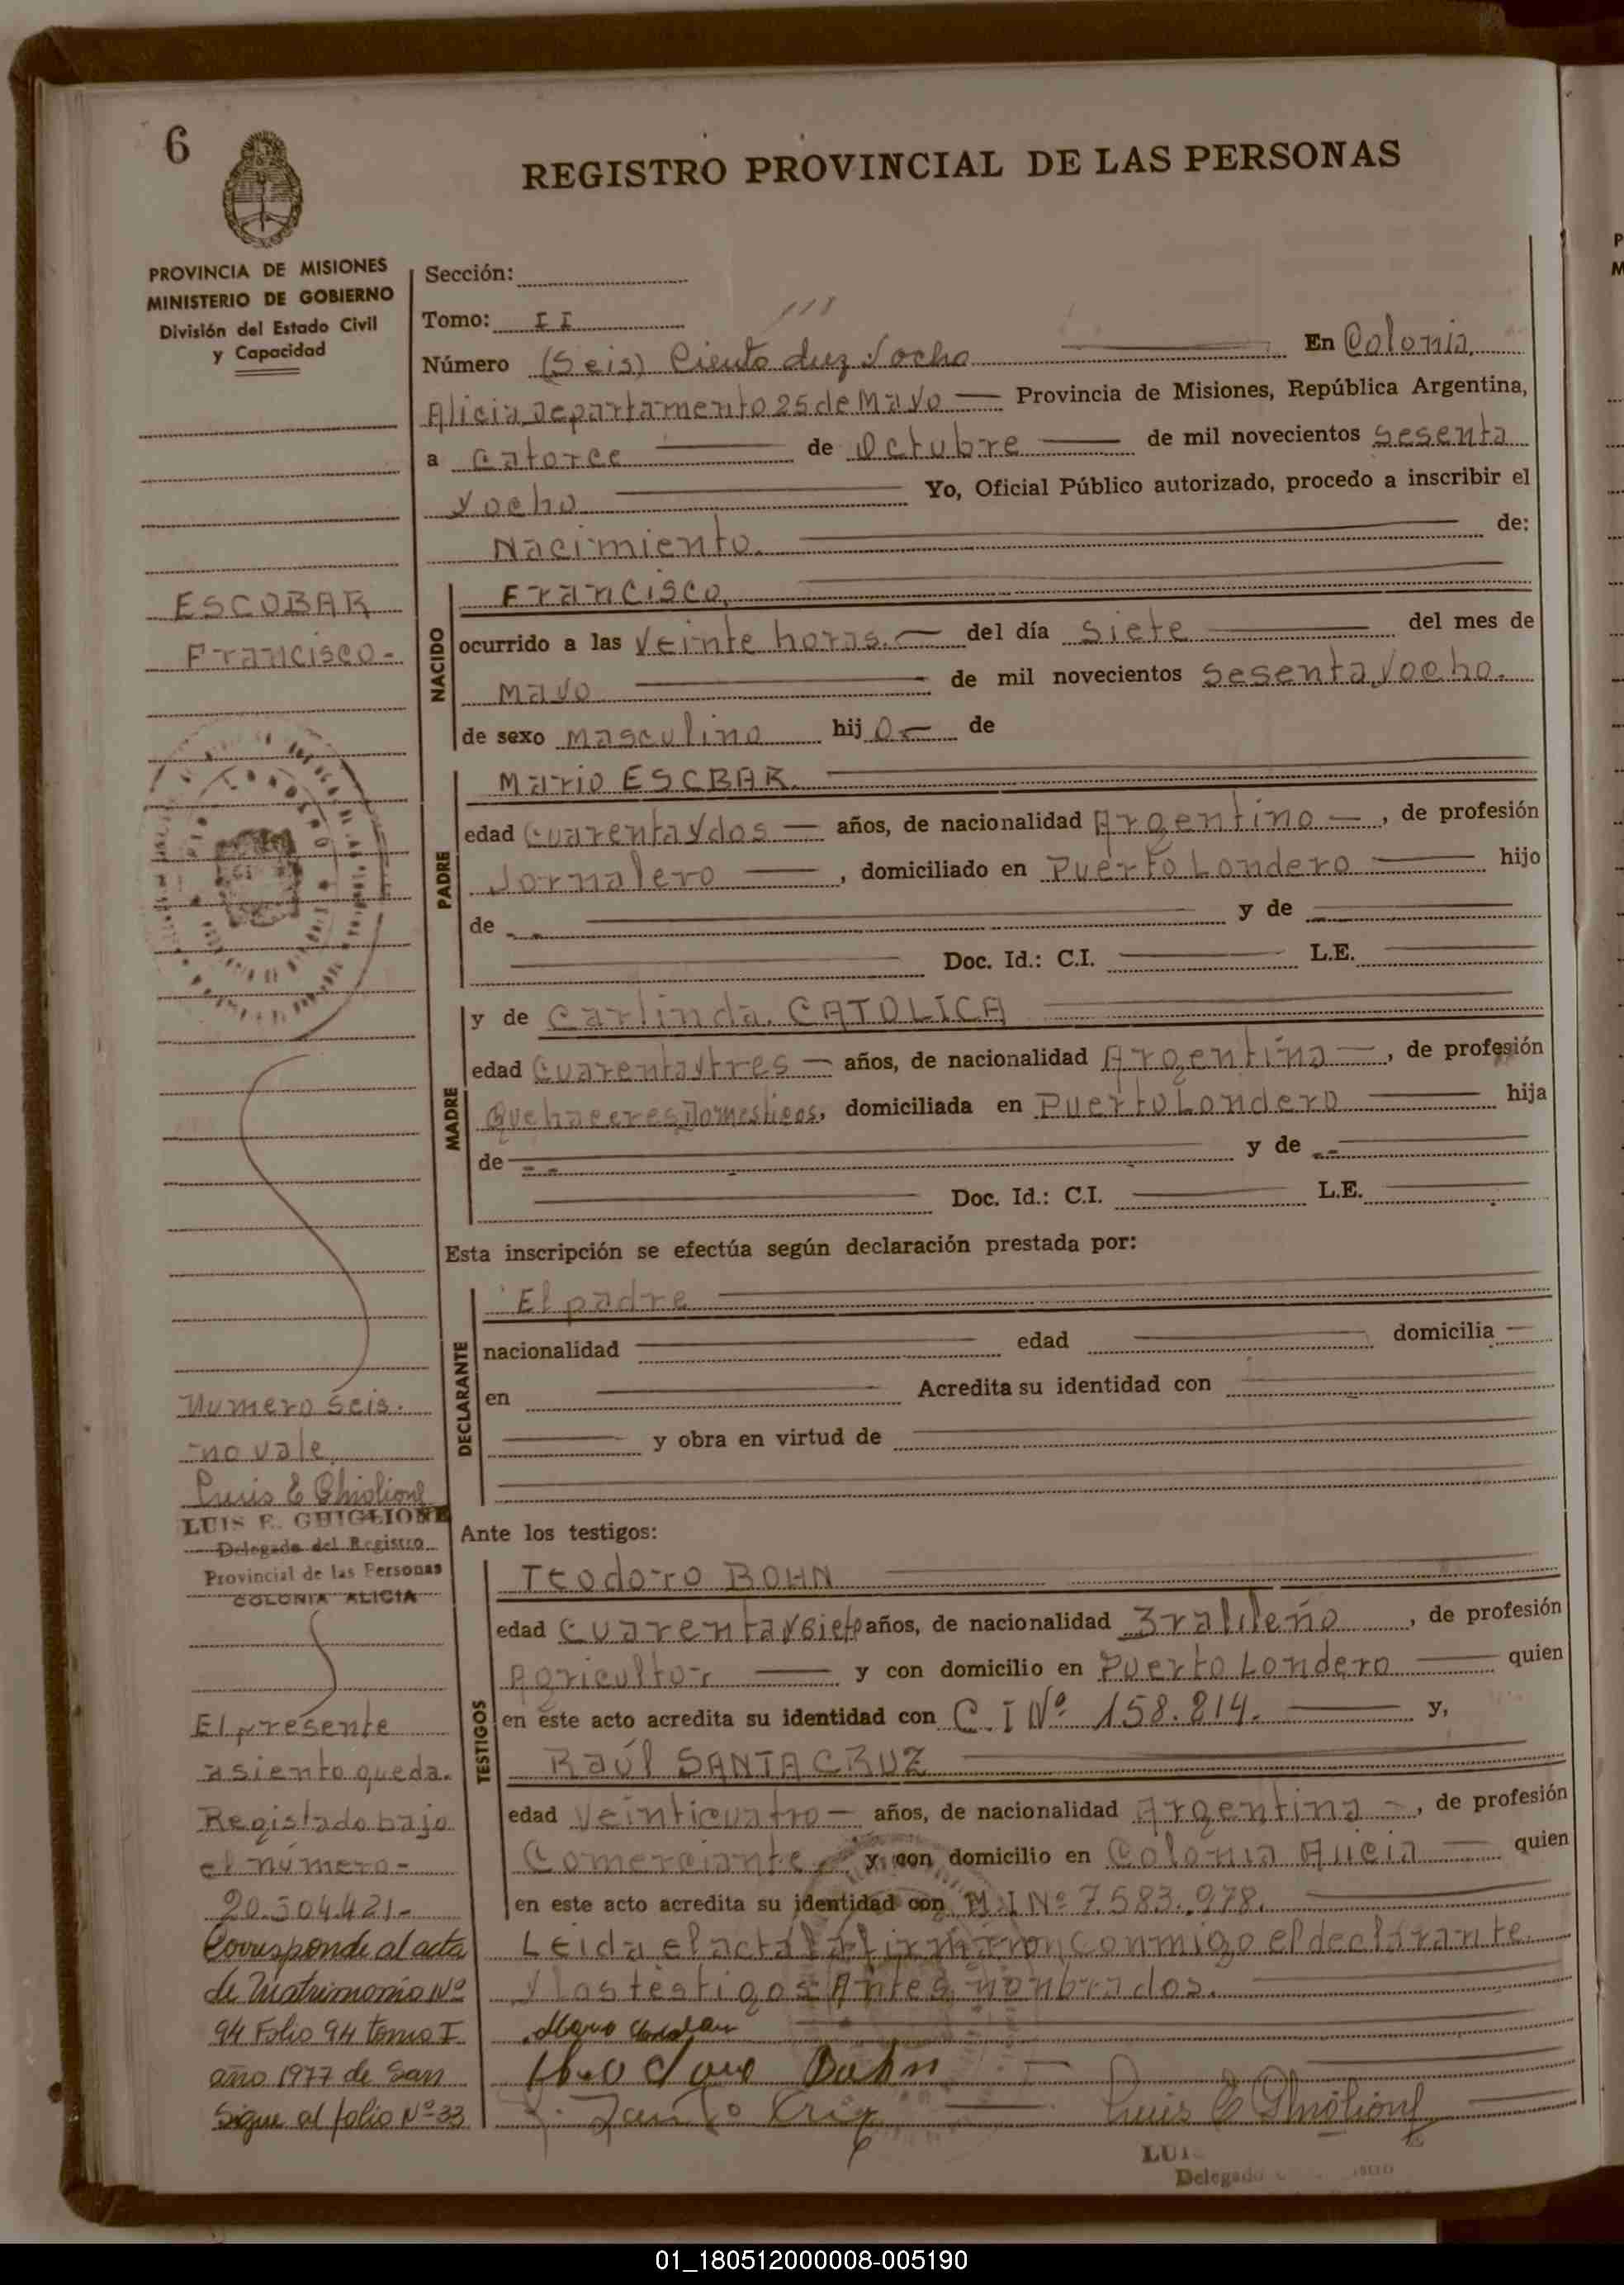 6
REGISTRO PROVINCIAL DE LAS PERSONAS
PROVINCIA DE MISIONES
MINISTERIO DE GOBIERNO
División del Estado Civil
y Capacidad
Sección:
118
Tomo: II
Número (Seis) Ciento diez y ocho En Colonia
Alicia Departamento 25 de Mayo — Provincia de Misiones, República Argentina,
a Catorce de Octubre de mil novecientos sesenta
y ocho Yo, Oficial Público autorizado, procedo a inscribir el
Nacimiento de:
ESCOBAR
Francisco-
NACIDO
Francisco
ocurrido a las Veinte horas. — del día Siete del mes de
Mayo de mil novecientos Sesenta y ocho.
de sexo Masculino hij o — de
PADRE
Mario ESCBAR.
edad Cuarenta y dos — años, de nacionalidad Argentino —, de profesión
Jornalero —, domiciliado en Puerto Londero — hijo
de y de
Doc. Id.: C.I. L.E.
MADRE
y de Carlinda. CATOLICA
edad Cuarenta y tres — años, de nacionalidad Argentina —, de profesión
Quehaceres Domesticos, domiciliada en Puerto Londero — hija
de y de
Doc. Id.: C.I. L.E.
Esta inscripción se efectúa según declaración prestada por:
DECLARANTE
El padre
nacionalidad edad domicilia
en Acredita su identidad con
y obra en virtud de
Numero seis.
no vale.
Luis E Ghiglione
LUIS E. GHIGLIONE
Delegado del Registro
Provincial de las Personas
COLONIA ALICIA
Ante los testigos:
TESTIGOS
Teodoro BOHN
edad Cuarenta y siete años, de nacionalidad Brasileño, de profesión
Agricultor — y con domicilio en Puerto Londero — quien
en este acto acredita su identidad con C.I Nº 158.214. — y,
Raúl SANTA CRUZ
edad Veinticuatro — años, de nacionalidad Argentina —, de profesión
Comerciante, y con domicilio en Colonia Alicia — quien
en este acto acredita su identidad con M.I Nº 7.583.978.
Leida el acta la firmaron conmigo el declarante
y los testigos Antes nombrados.
El presente
asiento queda.
Registado bajo
el número-
20.504.421-
Corresponde al acta
de Matrimonio Nº
94 Folio 94 tomo I
año 1977 de San
Sigue al folio Nº 33
Luis E Ghiglione
LUI
Delegado
01_180512000008-005190